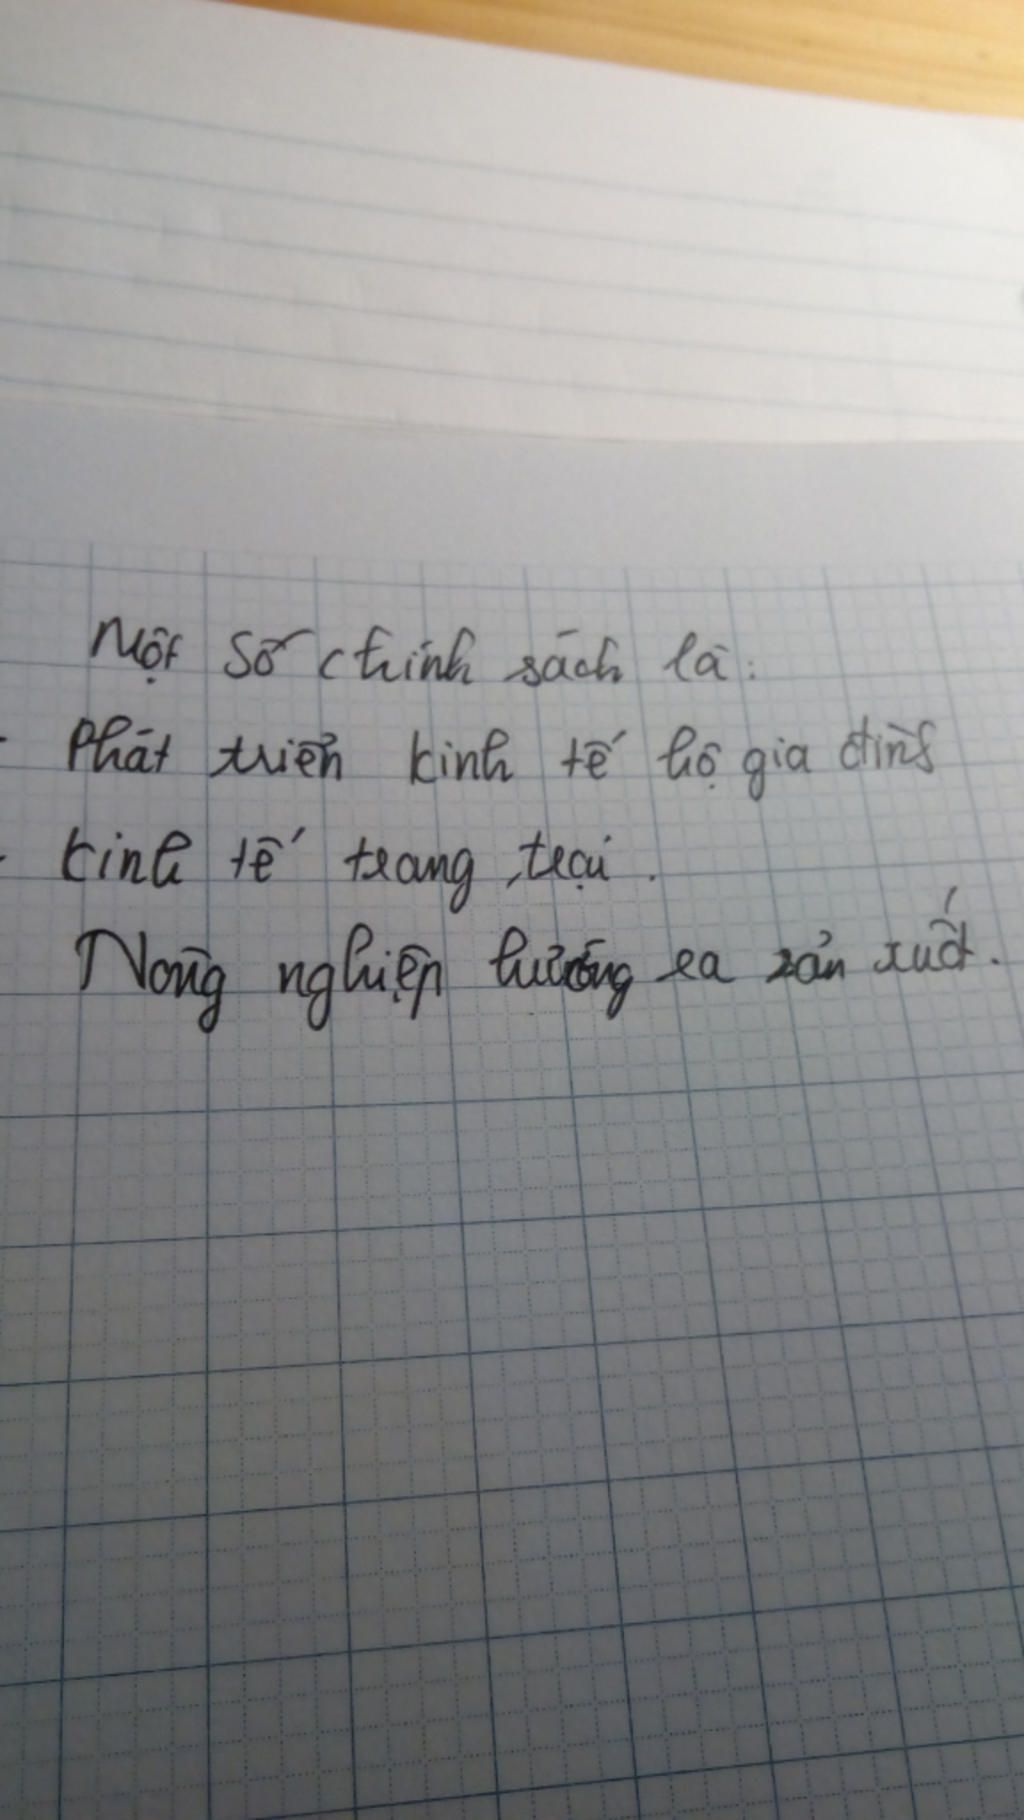 Một số chính sách là:
- Phát triển kinh tế hộ gia đình
- Kinh tế trang trại.
Nông nghiệp hướng ra sản xuất.